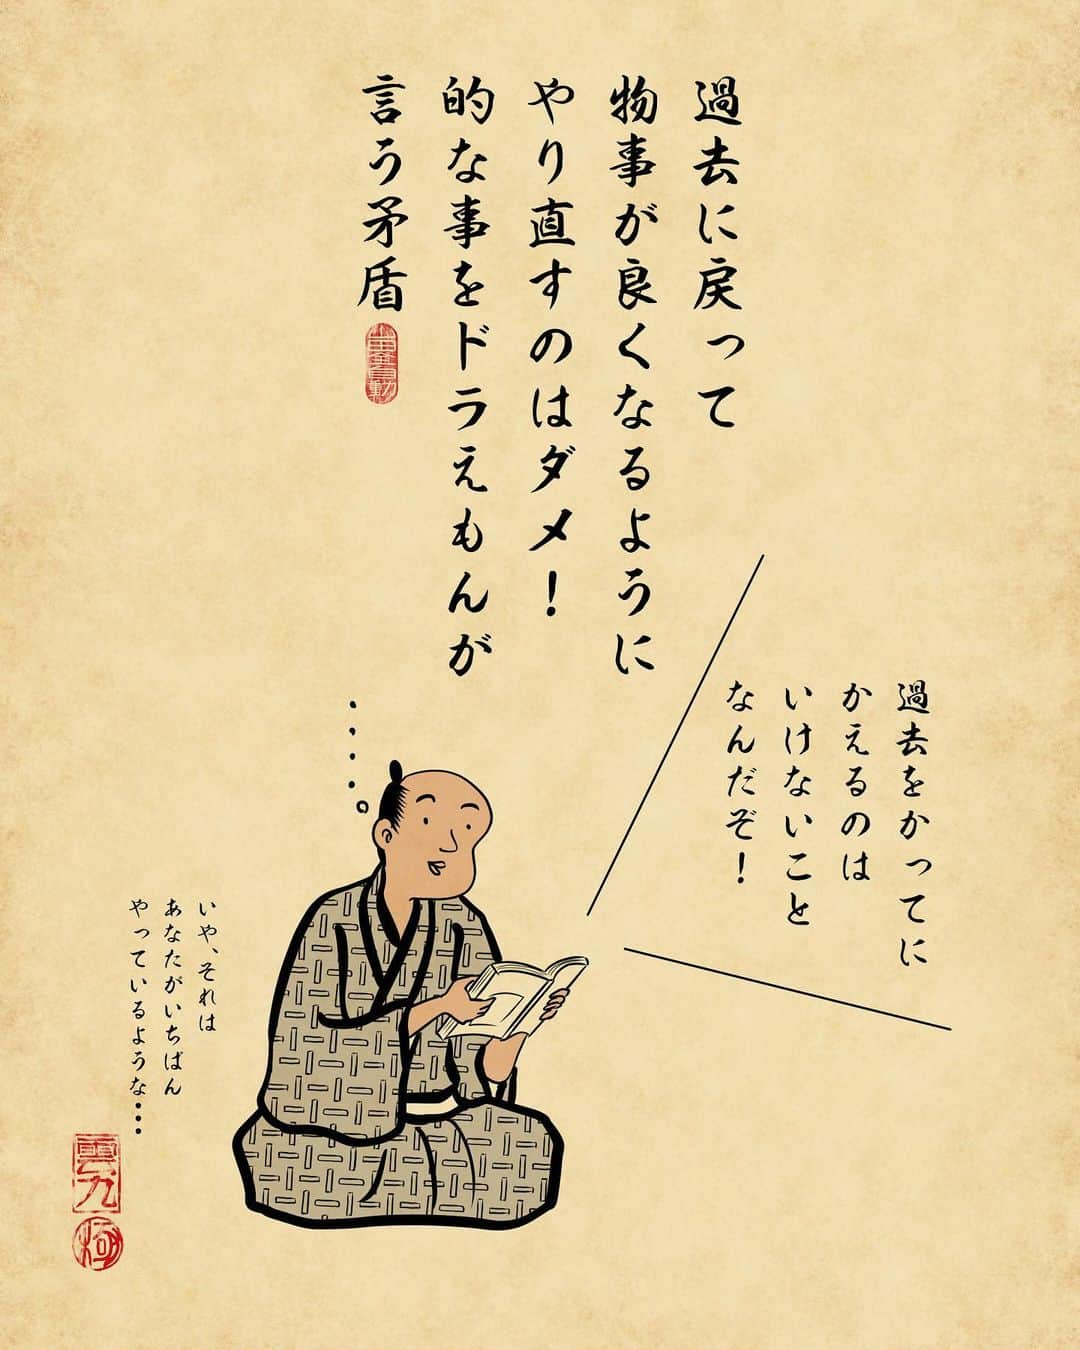 過去に戻って
物事が良くなるように
やり直すのはダメ！
的な事をドラえもんが
言う矛盾
過去をかってに
かえるのは
いけないこと
なんだぞ！
いや、それは
あなたがいちばん
やっているような・・・